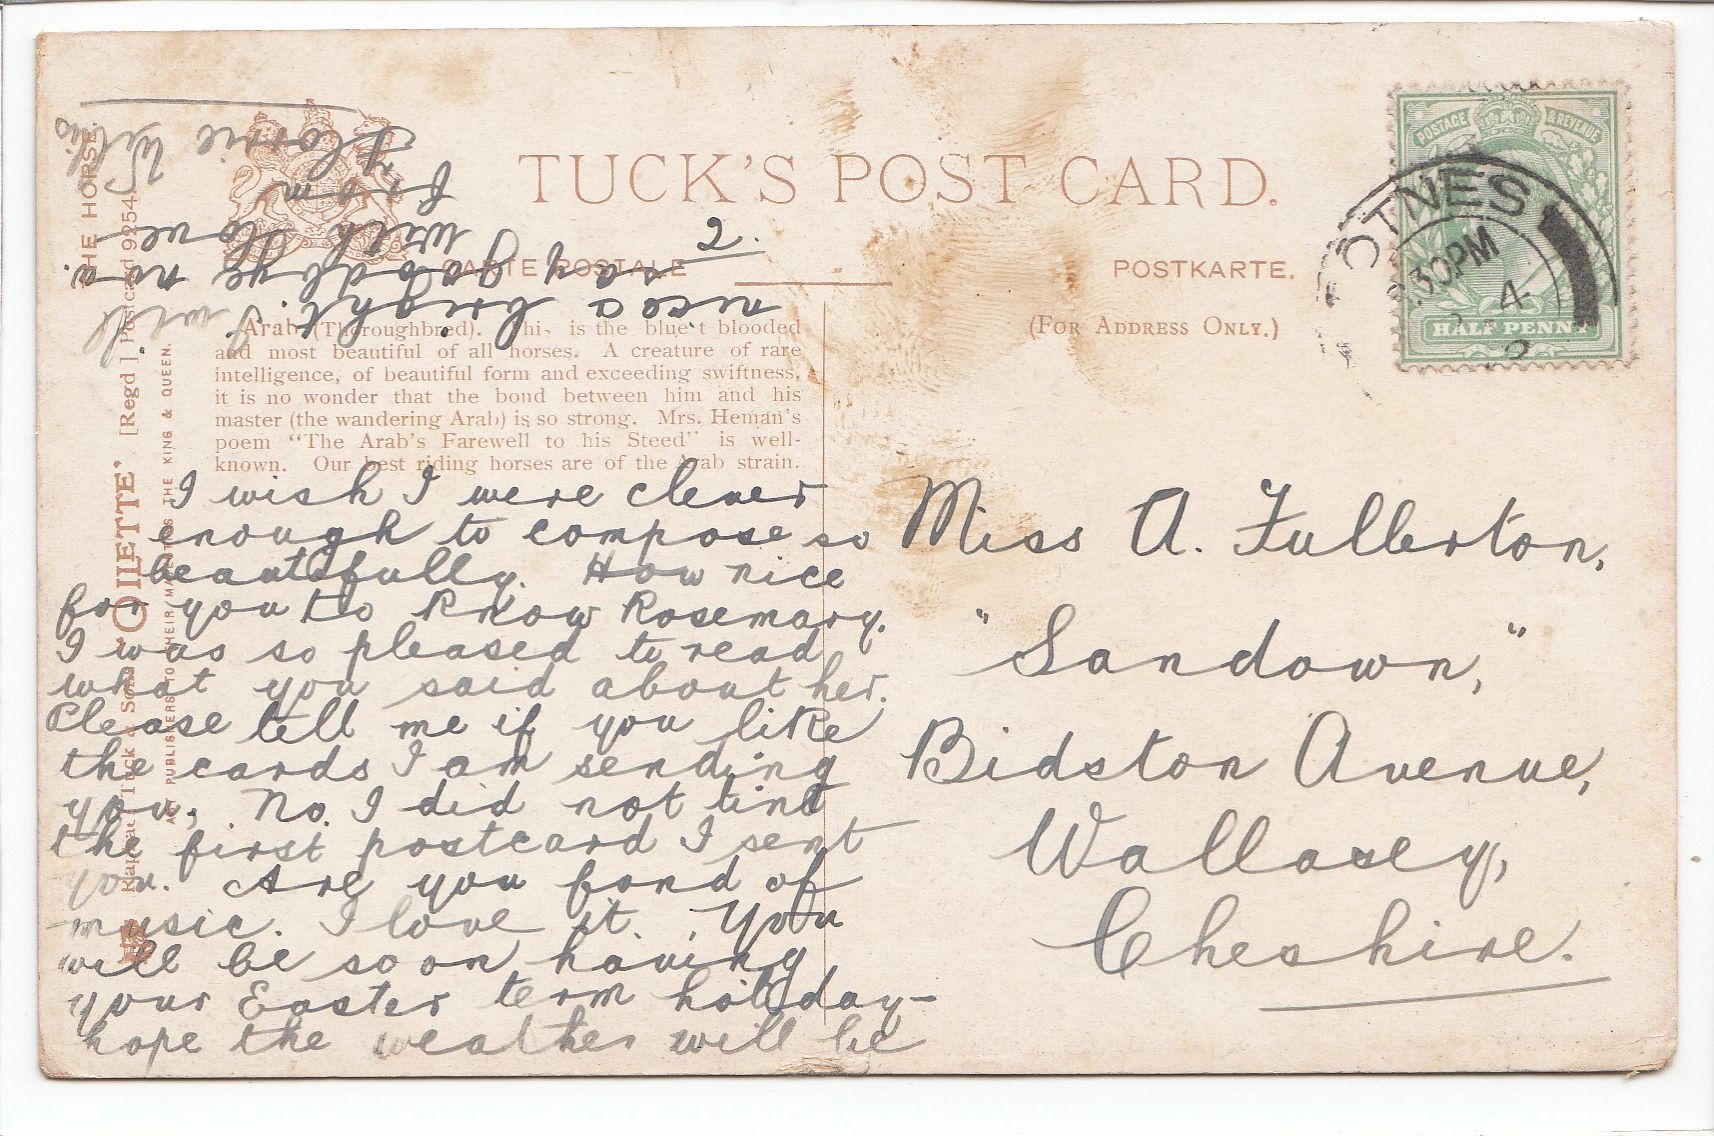 TUCK'S POST CARD.
CARTE POSTALE
POSTKARTE.
(FOR ADDRESS ONLY.)
POSTAGE & REVENUE
HALF PENNY
OTNES
30PM
4
THE HORSE.
[Regd.] Postcard 9254
"OILETTE"
Raphael Tuck & Sons'
ART PUBLISHERS TO THEIR MAJESTIES THE KING & QUEEN.
Arab (Thoroughbred). This is the bluest blooded
and most beautiful of all horses. A creature of rare
intelligence, of beautiful form and exceeding swiftness,
it is no wonder that the bond between him and his
master (the wandering Arab) is so strong. Mrs. Heman's
poem "The Arab's Farewell to his Steed" is well-
known. Our best riding horses are of the Arab strain.
I wish I were clever
enough to compose so
beautifully. How nice
for you to know Rosemary.
I was so pleased to read
what you said about her.
Please tell me if you like
the cards I am sending
you, No I did not tint
the first postcard I sent
you. Are you fond of
music. I love it. You
will be soon having
your Easter term holiday-
hope the weather will be
nice & bright. I will
say goodbye now
with love
from
Florrie
Miss A. Fullerton,
"Sandown,"
Bidston Avenue,
Wallasey,
Cheshire.